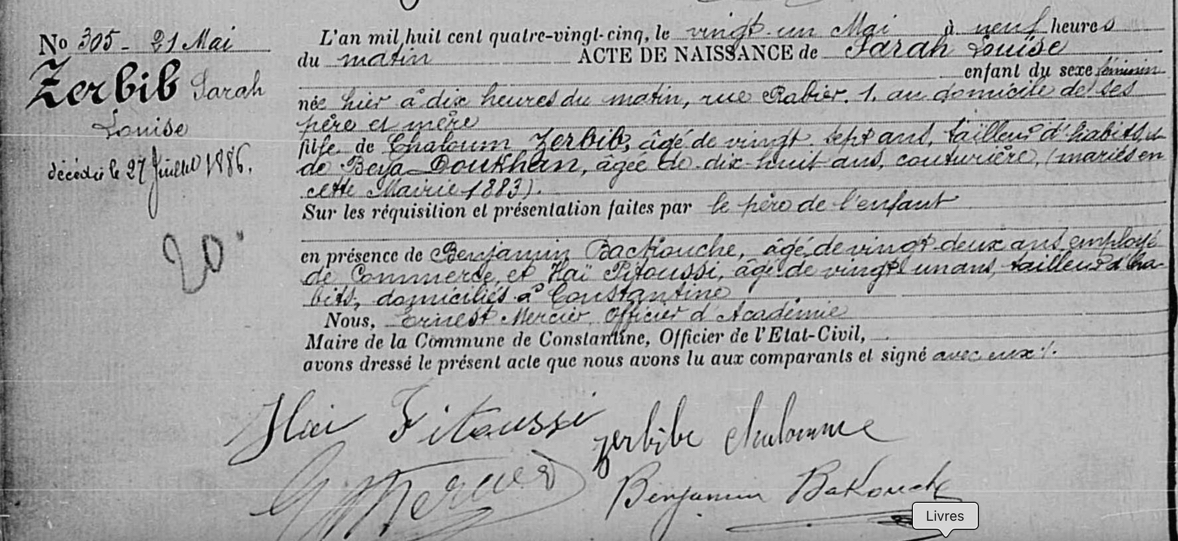 No 305 - 21 Mai
Zerbib Sarah
Louise
décédée le 27 Juillet 1886.
20
L'an mil huit cent quatre-vingt-cinq, le vingt un Mai à neuf heures
du matin ACTE DE NAISSANCE de Sarah Louise
enfant du sexe féminin
née hier à dix heures du matin, rue Rabier, 1, au domicile de ses
père et mère
fille de Chaloum Zerbib, âgé de vingt sept ans, tailleur d'habits et
de Beya Doukhan, âgée de dix-huit ans, couturière, (mariés en
cette Mairie 1883).
Sur les réquisition et présentation faites par le père de l'enfant
en présence de Benjamin Backouche, âgé de vingt deux ans, employé
de Commerce, et Haï Fitoussi, âgé de vingt un ans, tailleur d'ha-
bits, domiciliés à Constantine
Nous, Ernest Mercier, Officier d'Académie
Maire de la Commune de Constantine, Officier de l'Etat-Civil,
avons dressé le présent acte que nous avons lu aux comparants et signé avec eux.
Haï Fitoussi
zerbibe chaloumme
E Mercier
Benjamin Bakouche
Livres